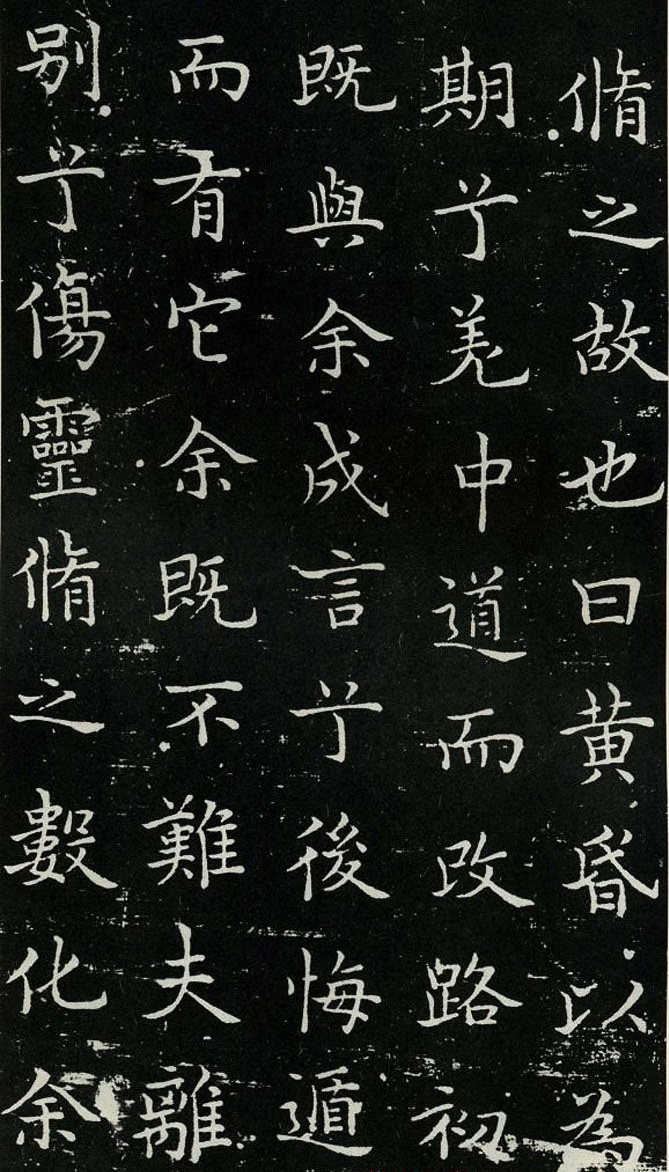 脩之故也曰黄昏以為
期兮羌中道而改路初
既與余成言兮後悔遁
而有它余既不難夫離
别兮傷靈脩之數化余